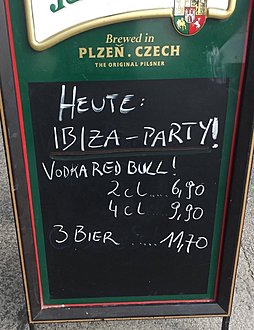 Brewed in
PLZEŇ . CZECH
THE ORIGINAL PILSNER
HEUTE:
IBIZA-PARTY!
VODKA RED BULL!
2 cl ... 6,90
4 cl ... 9,90
3 BIER ..... 11,70